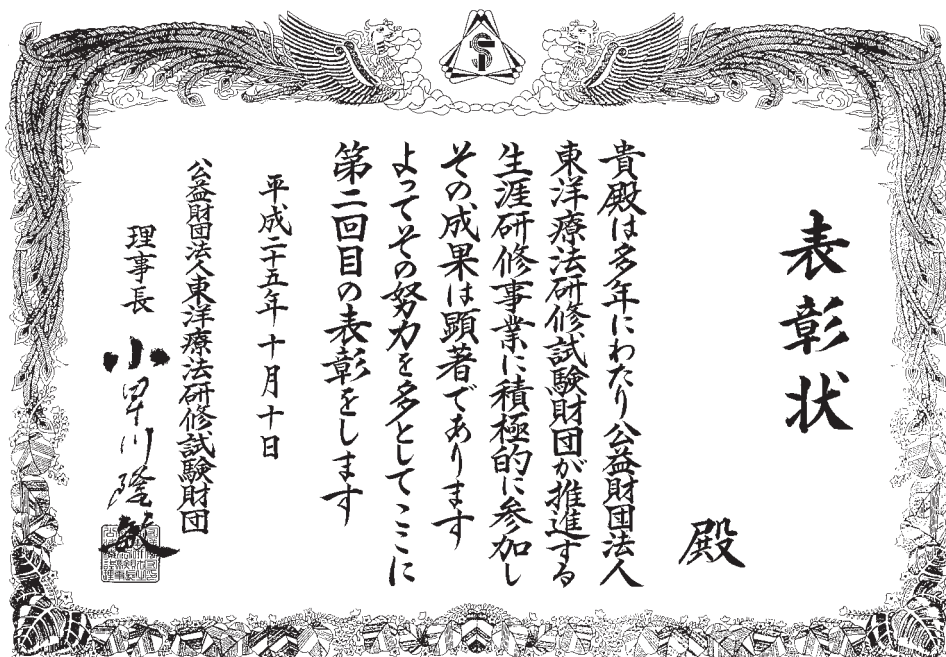 表彰状
殿
貴殿は多年にわたり公益財団法人
東洋療法研修試験財団が推進する
生涯研修事業に積極的に参加し
その成果は顕著であります
よってその努力を多としてここに
第二回目の表彰をします
平成二十五年十月十日
公益財団法人東洋療法研修試験財団
理事長 小川隆